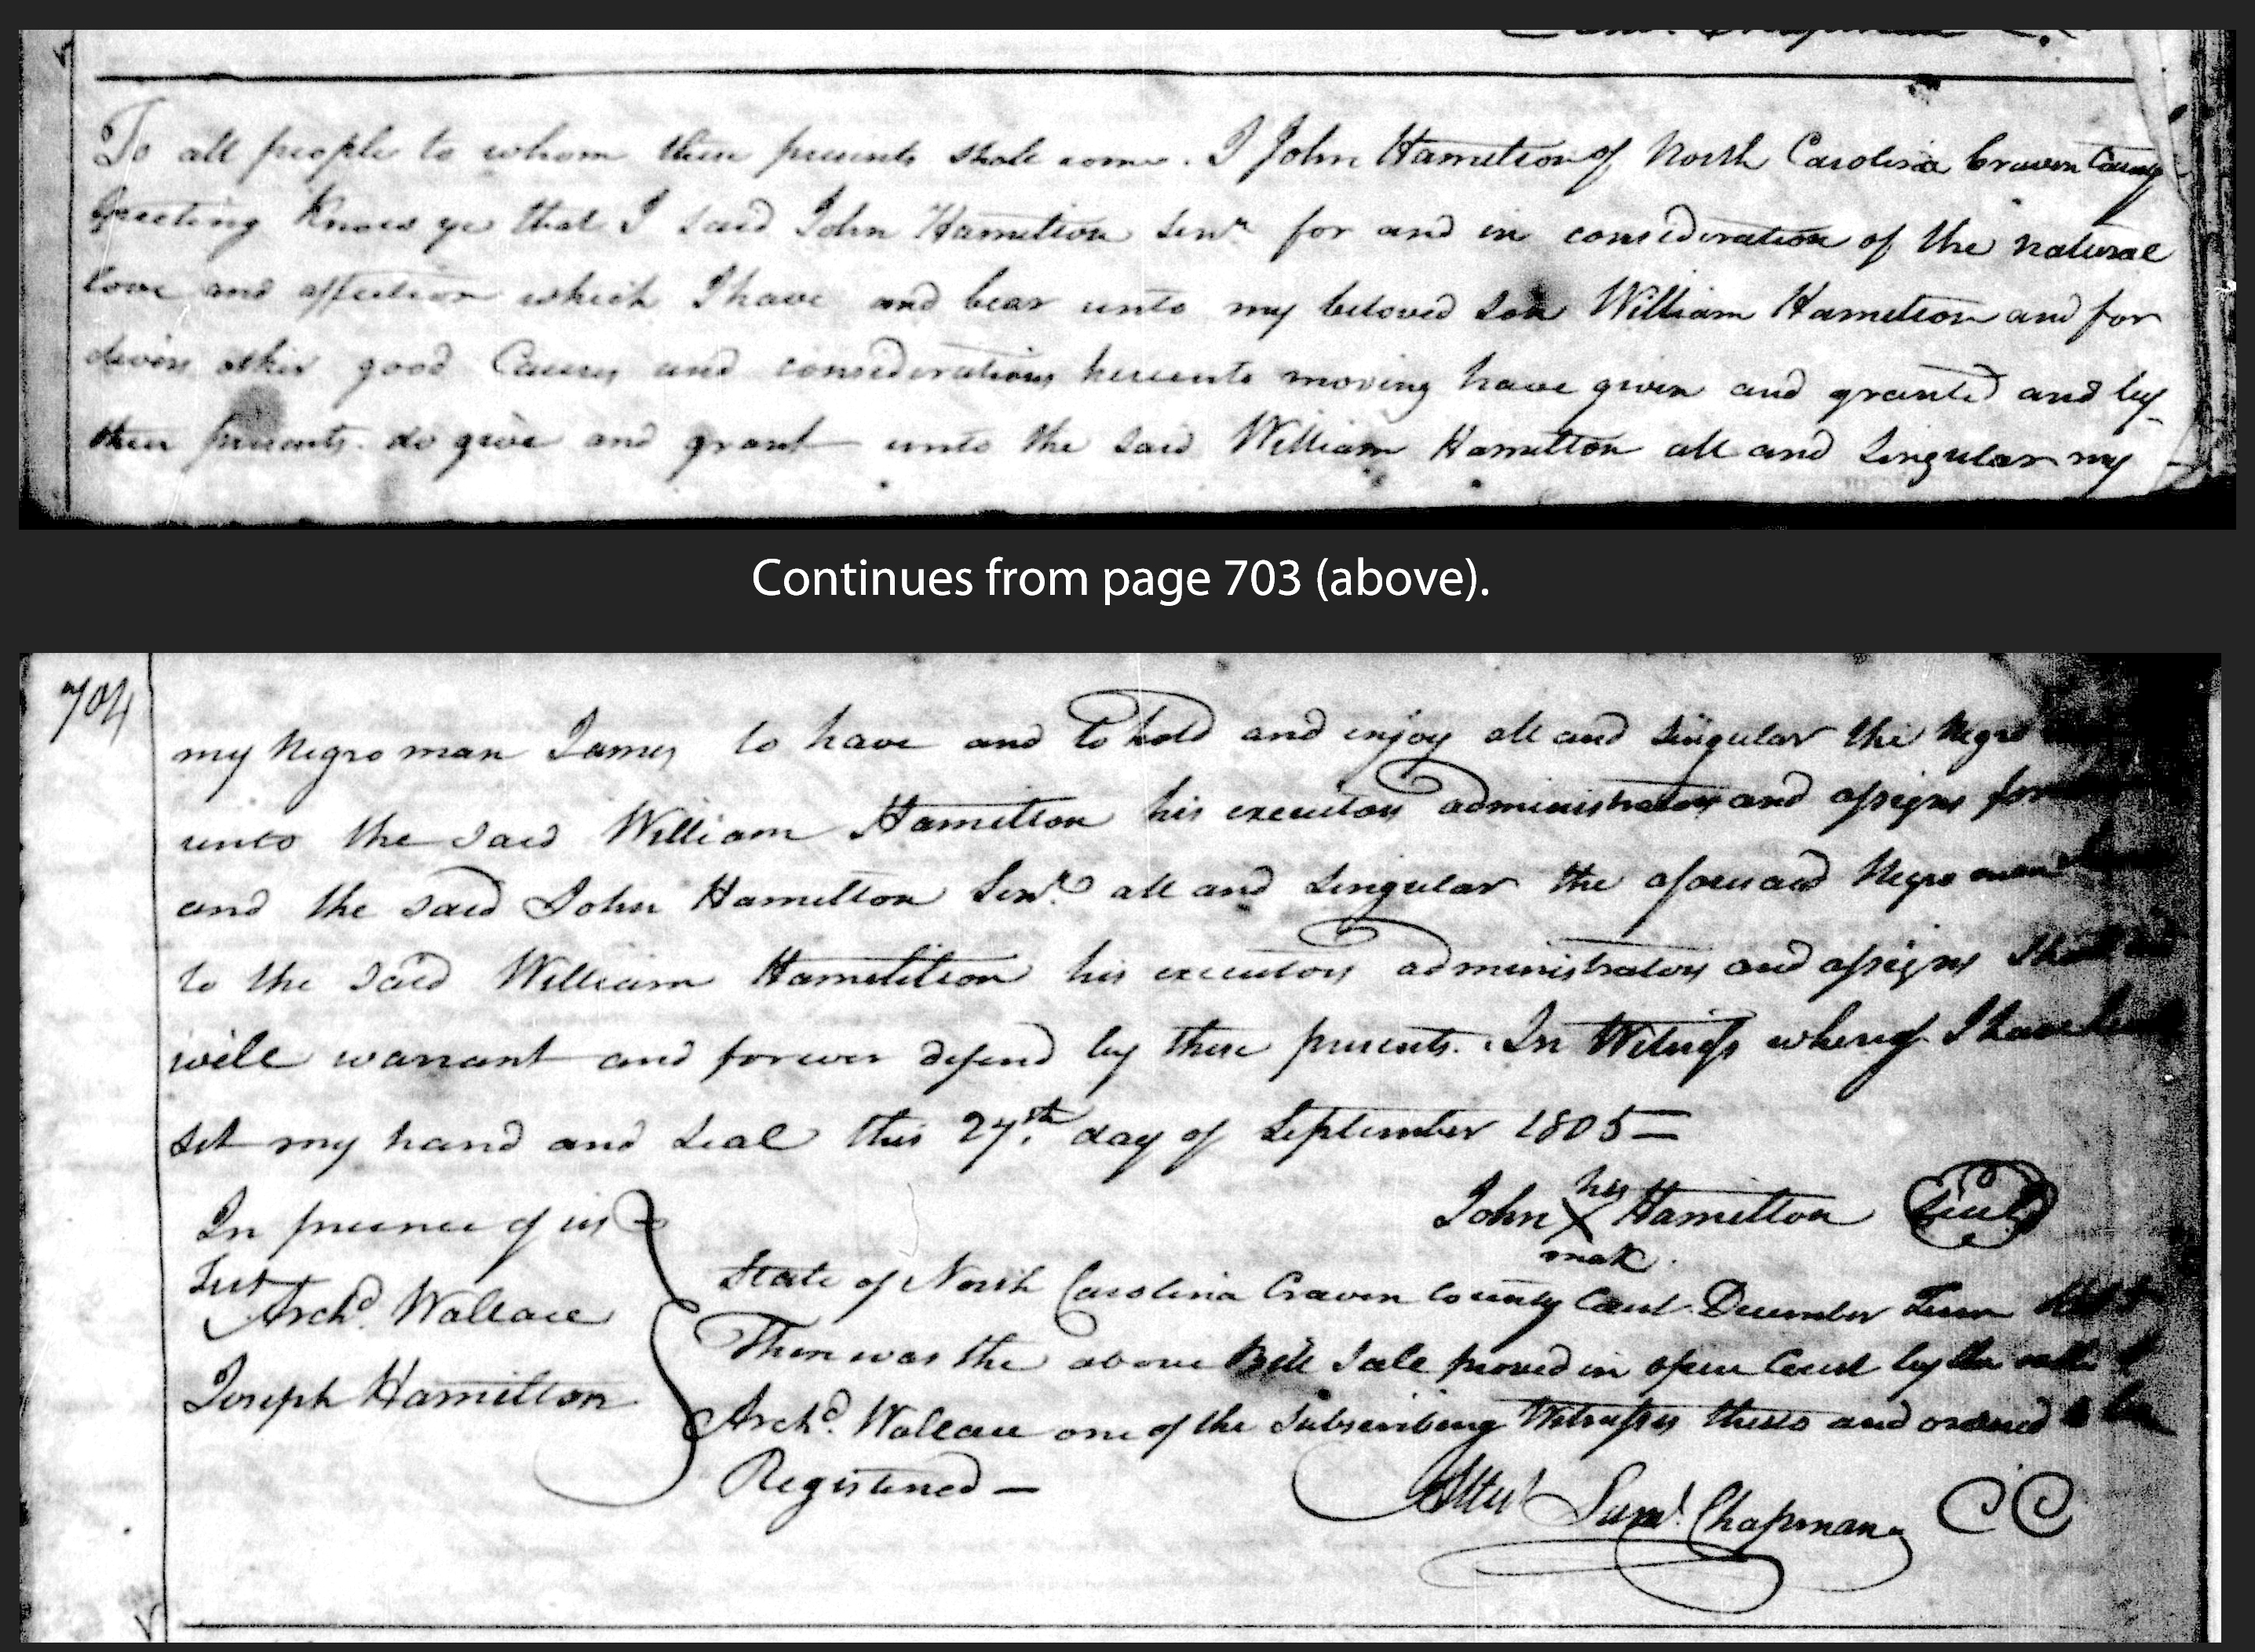 To all people to whom these presents shall come. I John Hamilton of North Carolina Craven County
Greeting Know ye that I said John Hamilton Senr for and in consideration of the natural
love and affection which I have and bear unto my beloved Son William Hamilton and for
divers other good Causes and considerations hereunto moving have given and granted and by
these presents do give and grant unto the said William Hamilton all and Singular my
Continues from page 703 (above).
704
my Negro man James to have and to hold and enjoy all and Singular the Negro
unto the said William Hamilton his executors administrators and assigns
and the said John Hamilton Senr. all and Singular the aforesaid Negro man
to the said William Hamelition his executors administrators and assigns shall and
will warrant and forever defend by these presents. In Witness whereof I have
set my hand and Seal this 27th. day of September 1805
In presence of us
his
John X Hamilton Seal
mark.
Test
Archd. Wallace
Joseph Hamilton
State of North Carolina Craven County Court December Term
Then was the above Bill Sale proved in open Court by the oath of
Archd. Wallace one of the Subscribing Witnesses thereto and ordered to be
Registered —
Attest Saml. Chapman CC